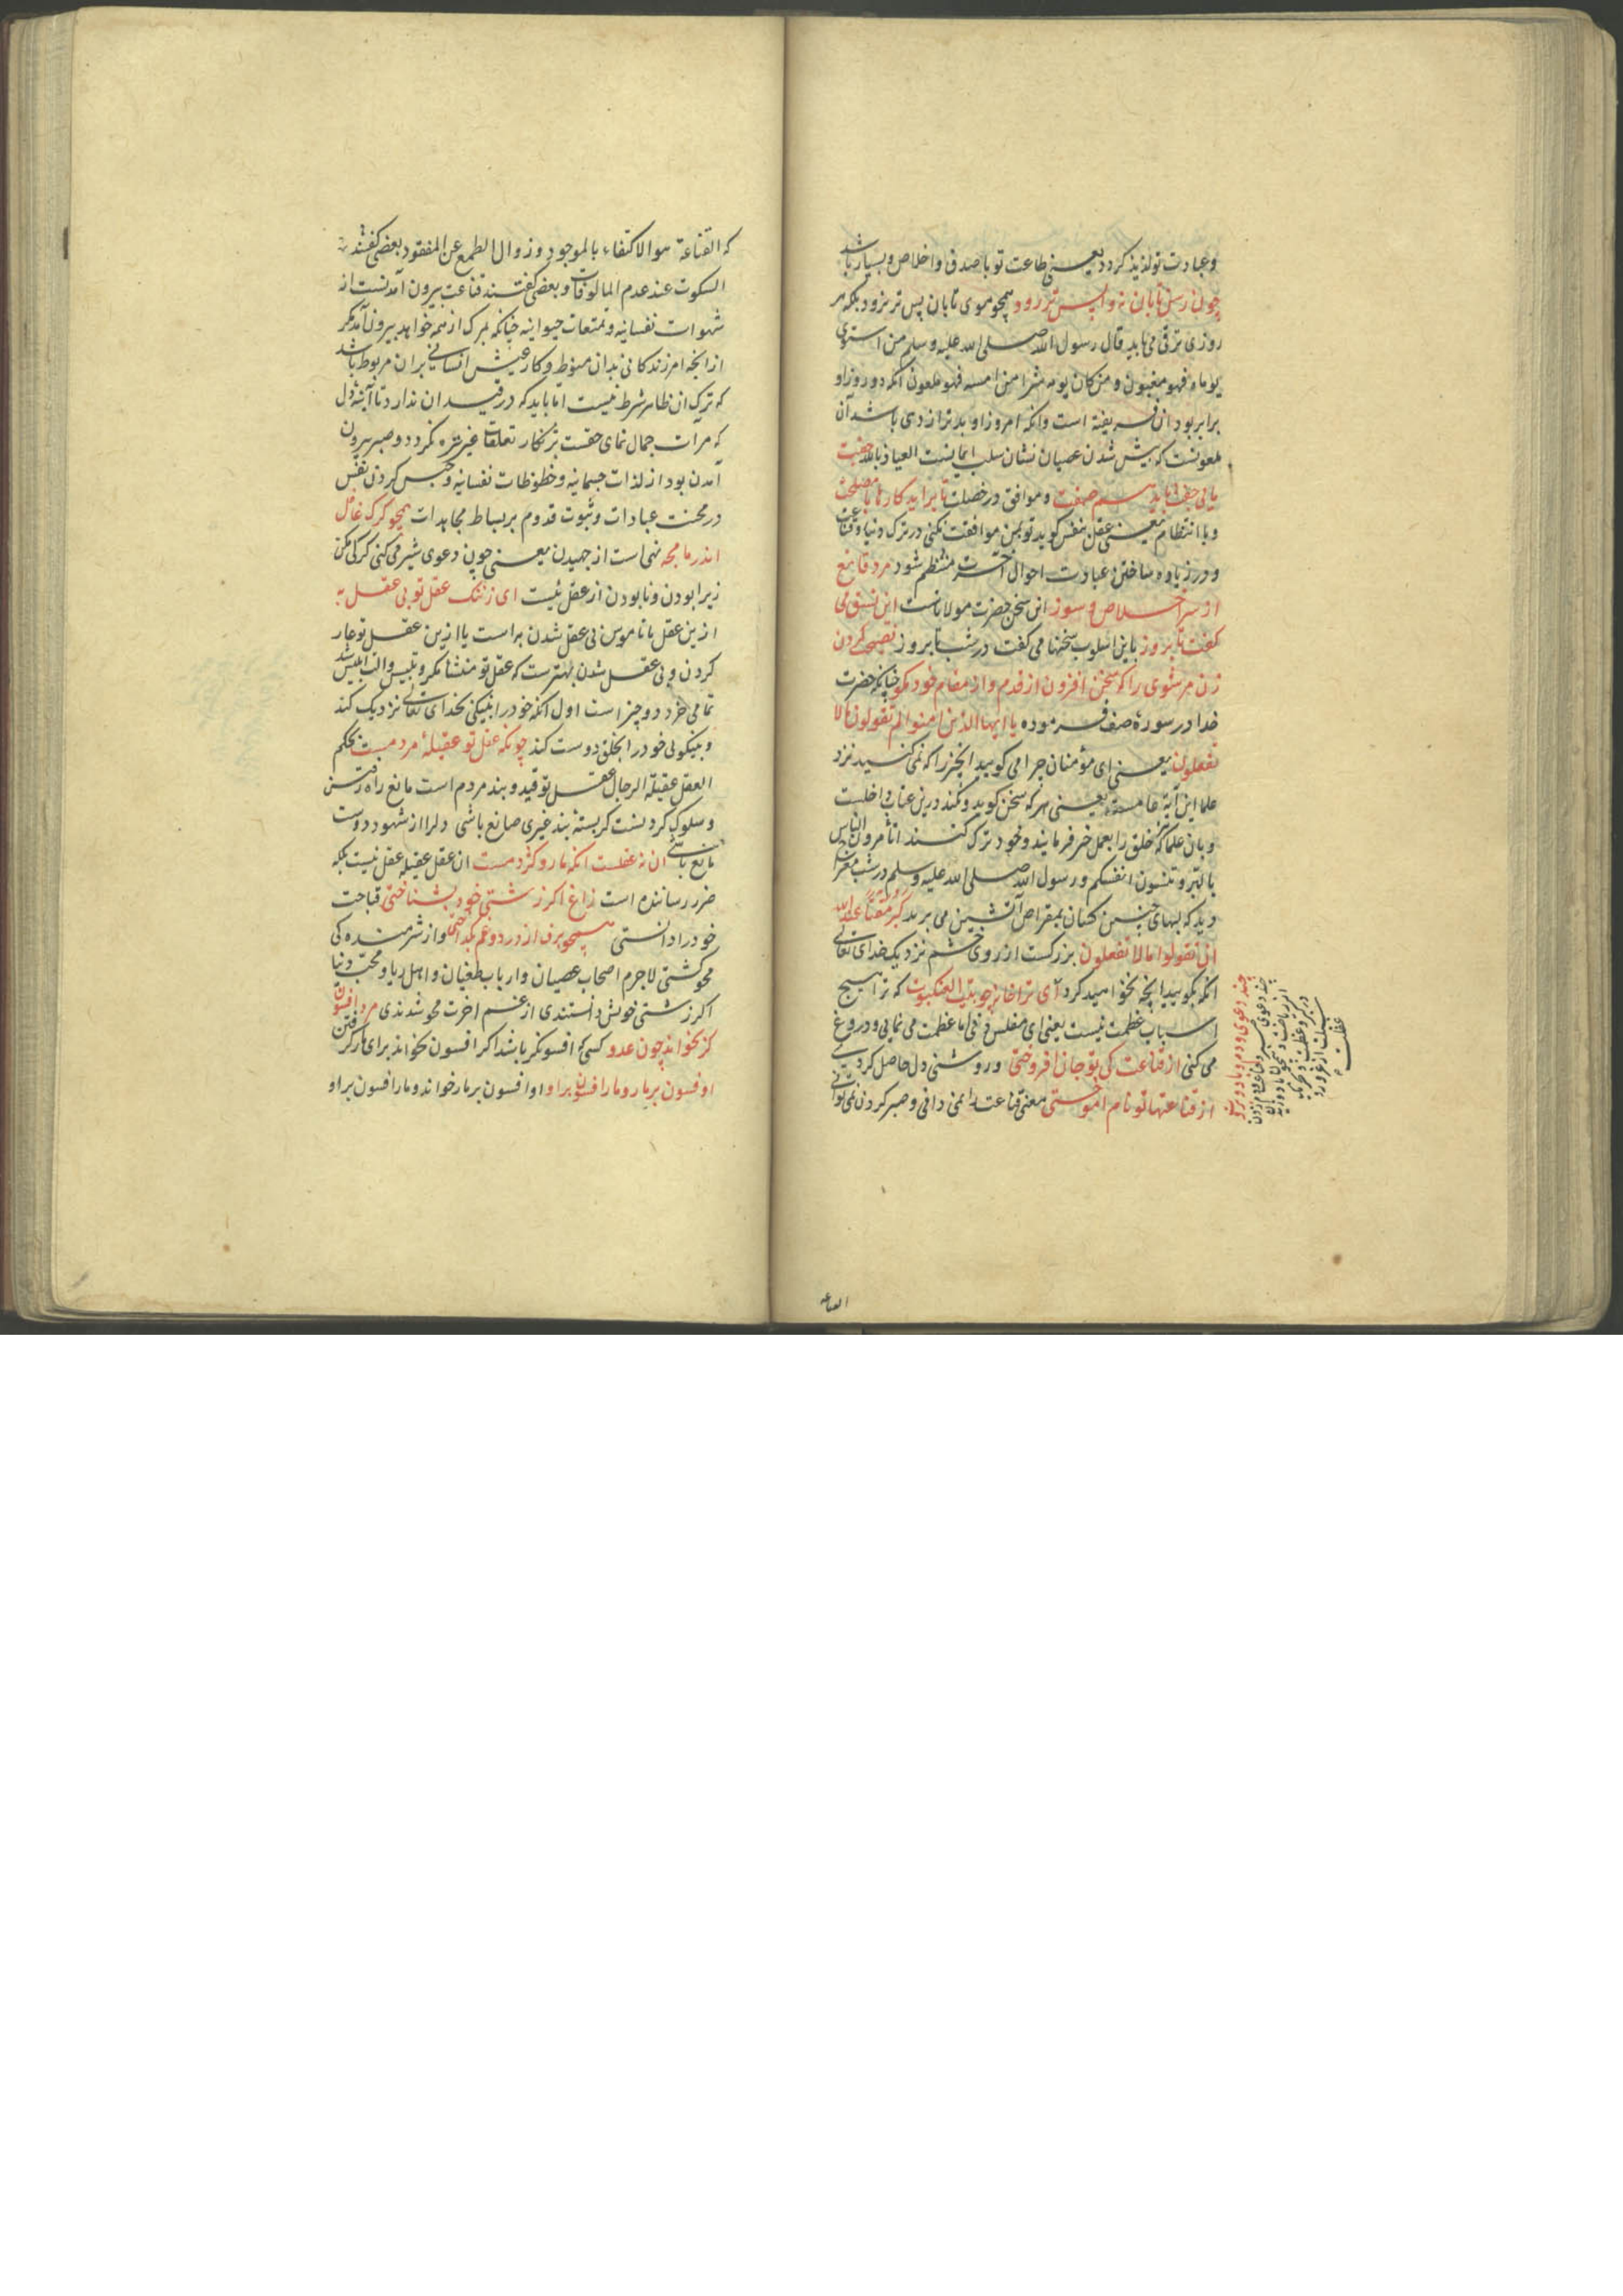 وعبادت تو لذیذ کردد یعنی طاعت تو با صدق واخلاص وبسیار باشد
چون رسن تابان نه واپس تر رود همچو موی تابان پس تر نرود بلکه هر
روزی ترقی می یابد قال رسول الله صلی الله علیه وسلم من استوی
یوماه فهو مغبون ومن کان یومه شرا من امسه فهو ملعون آنکه دو روز او
برابر بود آن فریفته است وانکه امروز او بدتر از دی باشد آن
ملعونست که بیش شدن عصیان نشان سلب ایمانست العیاذ بالله جفت
مایی جفت باید هم صفت وموافق در خصلت تا براید کارها با مصلحت
وبا انتظام یعنی عقل بنفس کوید تو بمن موافقت نکنی در ترک دنیا وقناعت
ودر زیاده ساختن عبادت احوال آخرت منتظم شود مرد قانع
از سر اخلاص وسوز این سخن حضرت مولاناست این نسق می
کفت تا بروز باین اسلوب سخنها می کفت در شب تا بروز نصیحت کردن
زن مر شوی را که سخن افزون از قدم واز مقام خود مکو چنانکه حضرت
خدا در سورهٔ صف فرموده یا ایها الذین امنوا لم تقولون ما لا
تفعلون یعنی ای مؤمنان چرا می کویید انچیز را که نمی کنید نزد
علما این آیه عامست یعنی هر که سخن کوید ونکند درین عتاب داخلست
وبان علما که خلق را بعمل خیر فرمایند وخود ترک کنند اتامرون الناس
بالبر وتنسون انفسکم ورسول الله صلی الله علیه وسلم در شب معراج
دید که لبهای چنین کسان بمقراض آتشین می برید کبر مقتا عند الله
ان تقولوا ما لا تفعلون بزرکست از روی خشم نزدیک خدای تعالی
انکه بکویید انچه نخواهید کرد ای ترا خانه چو بیت العنکبوت که ترا هیچ
اسباب عظمت نیست یعنی ای مفلس فی اما عظمت می نمایی ودروغ
می کنی از قناعت کی تو جان افروختی وروشنی دل حاصل کردی
از قناعتها تو نام آموختی معنی قناعت را نمی دانی وصبر کردن نمی توانی
چند دعوی ودم وباد وبروت
القناعه
که القناعة هو الاکتفاء بالموجود وزوال الطمع عن المفقود بعضی کفتند
السکوت عند عدم المالوفات وبعضی کفتند قناعت بیرون آمدنست از
شهوات نفسانیه وتمتعات حیوانیه چنانکه بمرک از همه خواهد بیرون آمد مکر
از انچه امر زندکانی بدان منوط وکار عیش انسانی بران مربوط باشد
که ترک ان ظاهر شرط نیست اما باید که در قید ان ندارد تا آینهٔ دل
که مرآت جمال نمای حقست بزنکار تعلقات غیر تیره نکردد وصبر بیرون
آمدن بود از لذات جسمانیه وحظوظات نفسانیه وحبس کردن نفس
در محنت عبادات وثبوت قدوم بر بساط مجاهدات همچو کرک غافل
اندر ما مجه نهی است از جهیدن یعنی چون دعوی شیر می کنی کرکی مکن
زیرا بودن ونابودن از عقل نیست ای ز ننک عقل تو بی عقل به
ازین عقل با ناموس بی عقل شدن به است یا ازین عقل تو عار
کردن وبی عقل شدن بهترست که عقل تو منشا مکر وتلبیس والت ابلیس شد
تمامی خرد دو چیز است اول انکه خود را بنیکی بخدای تعالی نزدیک کند
وبنیکویی خود را بخلق دوست کند چونکه عقل تو عقیلهٔ مردمست بحکم
العقل عقیلة الرجال عقل تو قید وبند مردم است مانع راه رفتن
وسلوک کردنست کر بسته بند غیری صانع باشی دلرا از شهود دوست
مانع باشی ان نه عقلست انکه مار وکژدمست ان عقل عقیله عقل نیست بلکه
ضرر رساننده است زاغ اکر زشتی خود بشناختی قباحت
خود را دانستی همچو برف از درد وغم بکداختی واز شرمنده کی
محو کشتی لاجرم اصحاب عصیان وارباب طغیان واهل ریا ومحب دنیا
اکر زشتی خویش دانستندی از غم اخرت محو شدندی مرد افسون
کر بخواند چون عدو کسی که افسونکر باشد اکر افسون بخواند برای مار کرفتن
او فسون بر مار ومار افسون برو او افسون بر مار خواند ومار افسون بر او